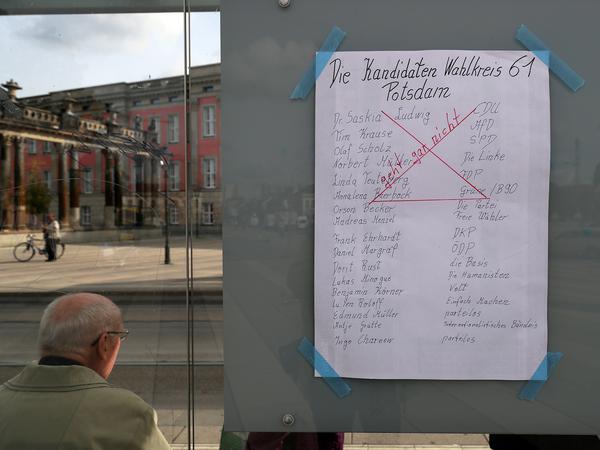 Die Kandidaten Wahlkreis 61
Potsdam
Dr. Saskia Ludwig CDU
Tim Krause AfD
Olaf Scholz SPD
Norbert Müller Die Linke
Linda Teuteberg FDP
Annalena Baerbock Grüne/B90
geht gar nicht
Orson Becker Die Partei
Andreas Menzel Freie Wähler
Frank Ehrhardt DKP
Daniel Margraf ÖDP
Dorit Rust die Basis
Lukas Die Humanisten
Benjamin Körner Volt
Roloff Einfach Machen
Edmund Müller parteilos
Antje Internationalistisches Bündnis
Ingo Charnow parteilos